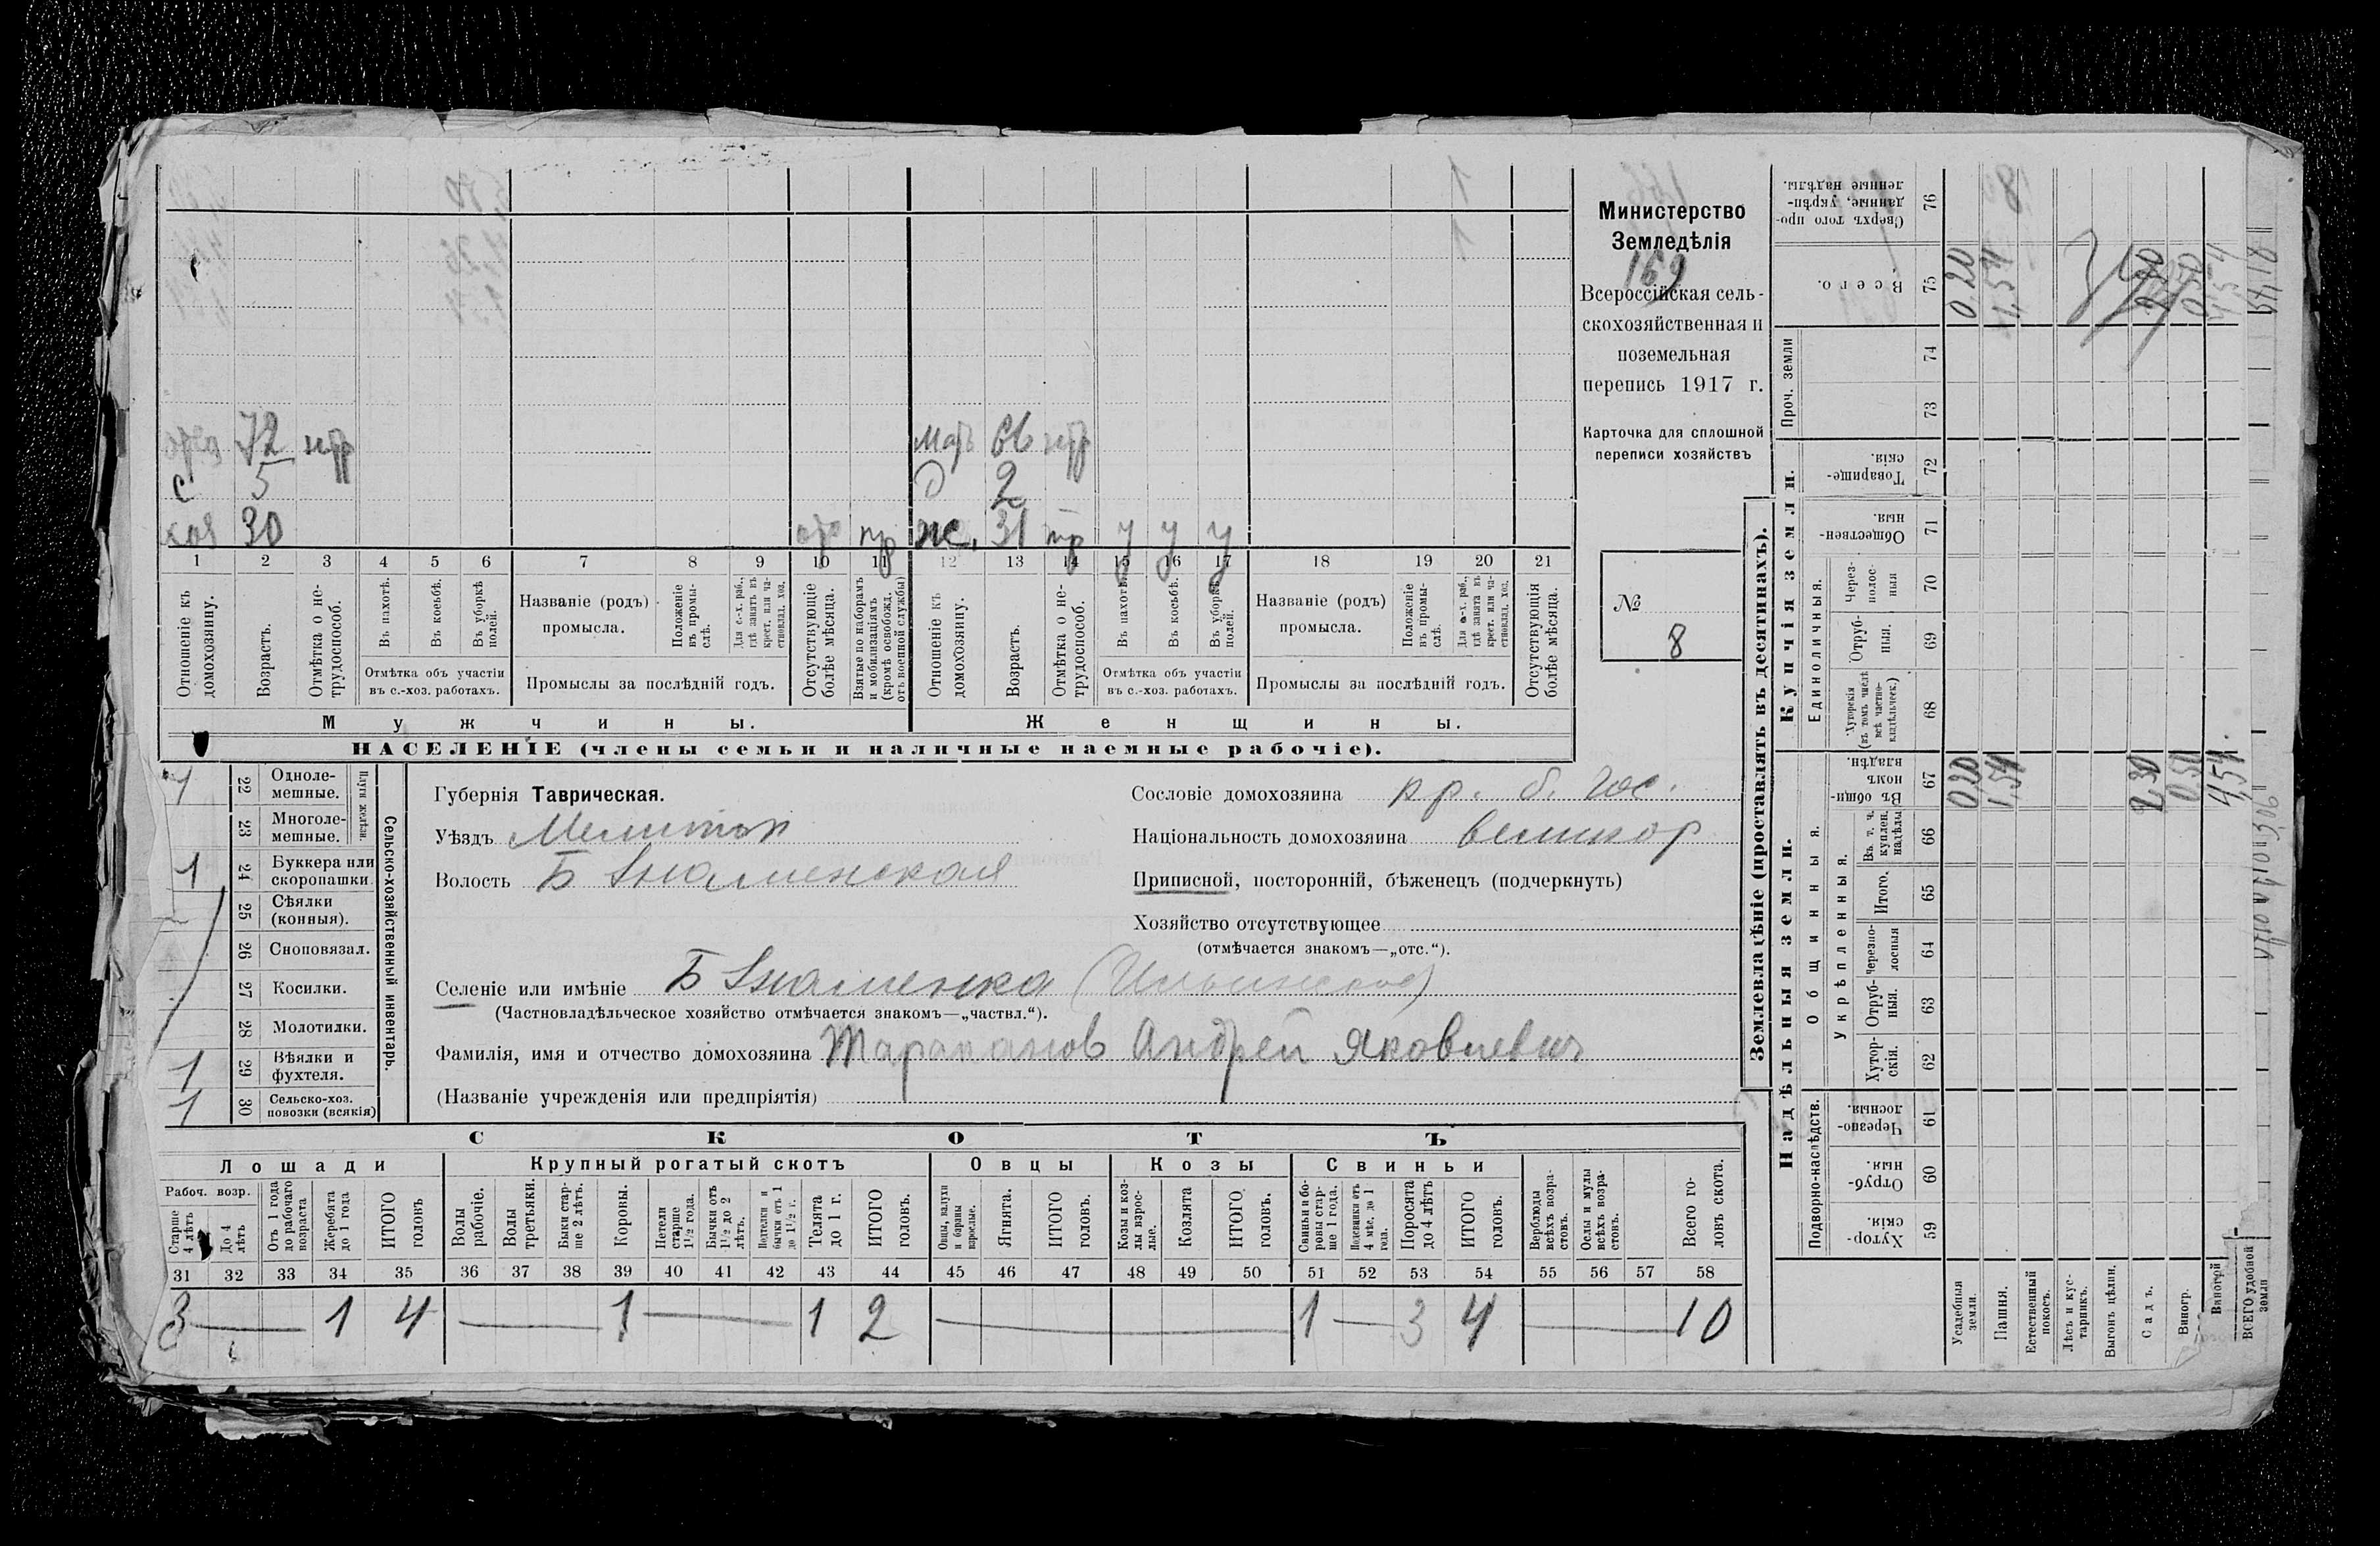 отец 72 нтр мать 66 нтр
с 5 д 2
хоз 30 отс пр ж. 31 тр у у у
1 2 3 4 5 6 7 8 9 10 11 12 13 14 15 16 17 18 19 20 21
Отношеніе къ домохозяину.
Возрастъ.
Отмѣтка о не-трудоспособ.
Въ пахотѣ.
Въ косьбѣ.
Въ уборкѣ полей.
Отмѣтка объ участіи въ с.-хоз. работахъ.
Названіе (родъ) промысла.
Положеніе въ промы-слѣ.
Для с.-х. раб., гдѣ занятъ въ крест. или ча-стновлад. хоз.
Промыслы за послѣдній годъ.
Отсутствующіе болѣе мѣсяца.
Взятые по наборамъ и мобилизаціямъ (кромѣ освобожд. отъ военной службы)
Отношеніе къ домохозяину.
Возрастъ.
Отмѣтка о не-трудоспособ.
Въ пахотѣ.
Въ косьбѣ.
Въ уборкѣ полей.
Отмѣтка объ участіи въ с.-хоз. работахъ.
Названіе (родъ) промысла.
Положеніе въ промы-слѣ.
Для с-х. раб., гдѣ занята въ крест. или ча-стновлад. хоз.
Промыслы за послѣдній годъ.
Отсутствующія болѣе мѣсяца.
Мужчины. Женщины.
НАСЕЛЕНІЕ (члены семьи и наличные наемные рабочіе).
Министерство
Земледѣлія
169
Всероссійская сель-
скохозяйственная и
поземельная
перепись 1917 г.
Карточка для сплошной
переписи хозяйствъ
№
8
1 22 Одноле-мешные.
23 Многоле-мешные.
Плуги желѣзн.
1 24 Буккера или скоропашки
25 Сѣялки (конныя).
26 Сноповязал.
27 Косилки.
28 Молотилки.
1 29 Вѣялки и фухтеля.
1 30 Сельско-хоз. повозки (всякія)
Сельско-хозяйственный инвентарь.
Губернія Таврическая.
Уѣздъ Мелитоп
Волость Б Знаменская
Сословіе домохозяина кр. б. гос.
Національность домохозяина великор
Приписной, посторонній, бѣженецъ (подчеркнуть)
Хозяйство отсутствующее
(отмѣчается знакомъ—„отс.“).
Селеніе или имѣніе Б Знаменка (Ильинское)
(Частновладѣльческое хозяйство отмѣчается знакомъ—„частвл.“).
Фамилія, имя и отчество домохозяина Тараканов Андрей Яковлевич
(Названіе учрежденія или предпріятія)
СКОТЪ
Лошади Крупный рогатый скотъ Овцы Козы Свиньи
Рабоч. возр.
Старше 4 лѣтъ
До 4 лѣтъ
Отъ 1 года до рабочаго возраста
Жеребята до 1 года
ИТОГО головъ
Волы рабочіе.
Волы третьяки.
Быки стар-ше 2 лѣтъ.
Коровы.
Нетели старше 1½ года.
Бычки отъ 1½ до 2 лѣтъ.
Подтелки и бычки отъ 1 до 1½ г.
Телята до 1 г.
ИТОГО головъ.
Овцы, валухи и бараны взрослые.
Ягнята.
ИТОГО головъ.
Козы и коз-лы взрос-лые.
Козлята
ИТОГО головъ.
Свиньи и бо-ровы стар-ше 1 года.
Подсвинки отъ 4 мѣс. до 1 года.
Поросята до 4 лѣтъ
ИТОГО головъ.
Верблюды всѣхъ возра-стовъ.
Ослы и мулы всѣхъ возра-стовъ.
Всего го-ловъ скота.
31 32 33 34 35 36 37 38 39 40 41 42 43 44 45 46 47 48 49 50 51 52 53 54 55 56 57 58
3 1 4 1 1 2 1 3 4 10
Землевладѣніе (проставлять въ десятинахъ).
Надѣльныя земли. Купчія земли.
Подворно-наслѣдств.
Общинныя.
Укрѣпленныя.
Единоличныя.
Проч. земли
Хутор-скія. 59
Отруб-ныя. 60
Черезпо-лосныя. 61
Хутор-скія. 62
Отруб-ныя. 63
Черезпо-лосныя 64
Итого. 65
Въ т. ч. куплен. надѣлы 66
Въ общи-номъ владѣн. 67
Хуторскія (въ томъ числѣ всѣ частно-владѣльческ.) 68
Отруб-ныя. 69
Через-полос-ныя 70
Обществен-ныя. 71
Товарище-скія. 72
73
74
Всего. 75
Сверхъ того про-данные, укрѣп-ленные надѣлы. 76
Усадебныя земли. 0,20 0,20
Пашня. 1,54 1,54
Естественный покосъ.
Лѣсъ и кус-тарникъ.
Выгонъ цѣлин.
Садъ. 2,30 2,30
Виногр. 0,50 0,50
4,54. 4,54
ВСЕГО удобной земли